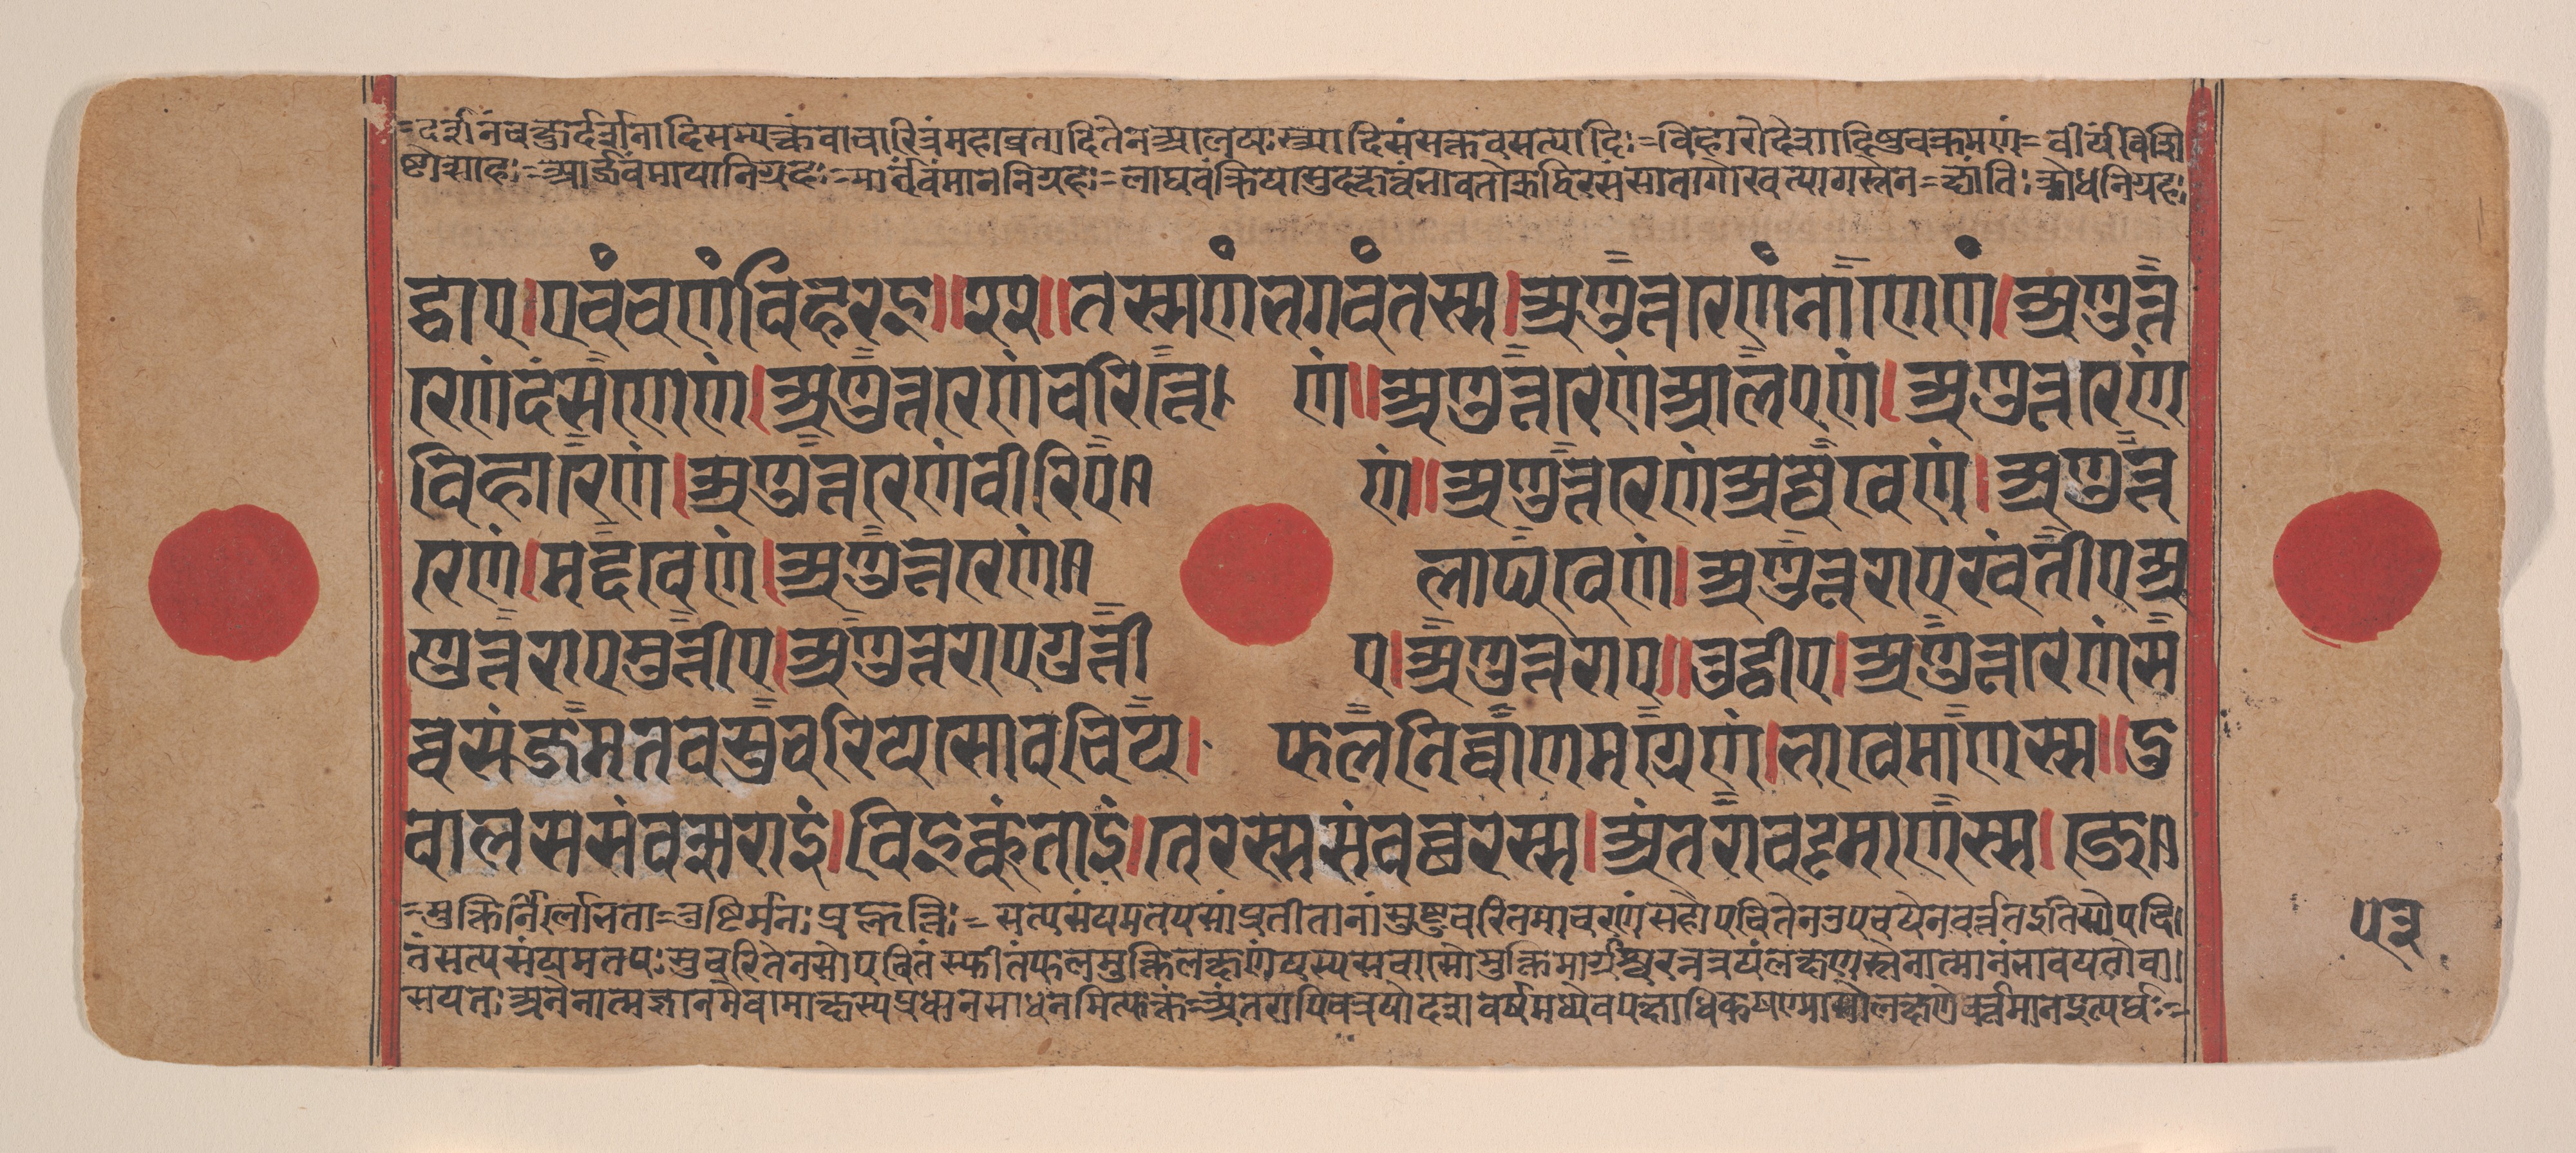 =दर्शनंचक्षुर्दर्शनादिसम्यक्त्वंवाचारित्रंमहाव्रतादितेनआलयःस्त्र्यादिसंसक्तवसत्यादिः=विहारोदेशादिषुचंक्रमणं=वीर्यंविशि
ष्टोत्साहः=आर्जवंमायानिग्रहः=मार्दवंमाननिग्रहः=लाघवंक्रियासुदक्षत्वंभावतोऋद्धिरससातागौरवत्यागस्तेन=क्षांतिःक्रोधनिग्रहः
ट्ठाए।एवंचणंविहरइ॥२२॥तस्सणंभगवंतस्स।अणुत्तरेणंनाणेणं।अणुत्त
रेणंदंसणेणं।अणुत्तरेणंचरित्ते। णं॥अणुत्तरेणंआलएणं।अणुत्तरेणं
विहारेणं।अणुत्तरेणंवीरिए णं॥अणुत्तरेणंअज्जवेणं।अणुत्त
रेणं।मद्दवेणं।अणुत्तरेणं लाघवेणं।अणुत्तराएखंतीएअ
णुत्तराएमुत्तीए।अणुत्तराएगुत्ती ए।अणुत्तराए॥तुट्ठीए।अणुत्तरेणंस
च्चसंजमतवसुचरियसोवचिय। फलनिव्वाणमग्गेणं।भावेमाणस्स॥दु
वालससंवत्सराइं।विइक्कंताइं।तेरस्ससंवच्छरस्स।अंतरावट्टमाणस्स।जे
=मुक्तिर्निर्लोभता=तुष्टिर्मनःप्रह्लत्तिः=सत्यसंयमतपसांप्रतीतानांसुष्ठुचरितमाचरणंसहोपचितेनउपचयेनवर्त्ततइतिसोपचि।
तंसत्यसंयमतपःसुचरितेनसोपचितंस्फीतंफलंमुक्तिलक्षणंयस्यसचासौमुक्तिमार्गश्चरत्नत्रयलक्षणस्तेनात्मानंभावयतोवा।
सयतःअनेनात्मज्ञानमेवमोक्षस्यप्रधानसाधनमित्युक्तं=अंतरापिचत्रयोदशवर्षमध्येवपक्षाधिकषण्मासलक्षणेवर्त्तमानइत्यर्थः=
५३